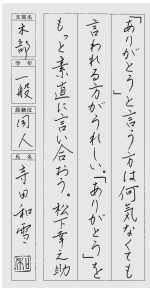 「ありがとう」と言う方は何気なくても
言われる方がうれしい。「ありがとう」を
もっと素直に言い合おう。松下幸之助
支部名
本部
学年
一般
段級位
同人
氏名
寺田和雪